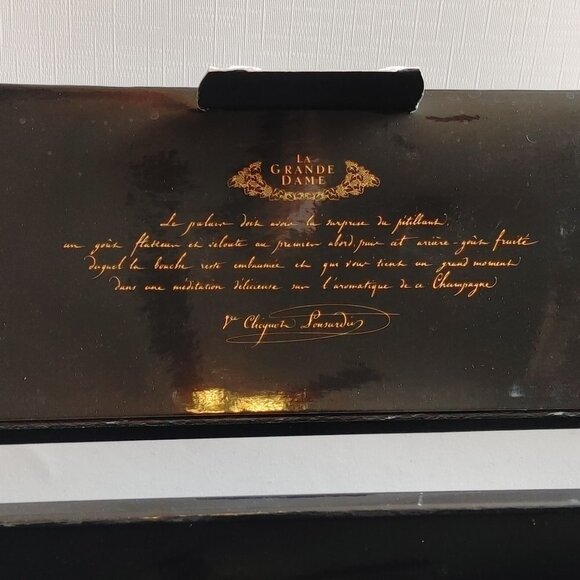 LA
GRANDE
DAME
Le palais doit avoir la surprise du pétillant,
un goût flatteur et velouté au premier abord, puis cet arrière-goût fruité
duquel la bouche reste embaumée et qui vous tient un grand moment
dans une méditation délicieuse sur l'aromatique de ce Champagne
Vve Clicquot Ponsardin